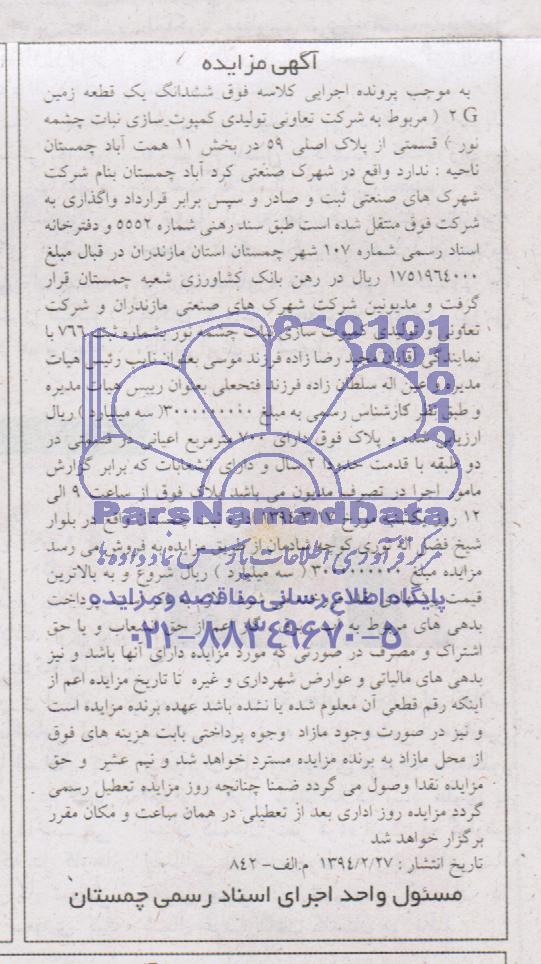 آگهی مزایده
به موجب پرونده اجرایی کلاسه فوق ششدانگ یک قطعه زمین
G ۲ ( مربوط به شرکت تعاونی تولیدی کمپوت سازی نبات چشمه
نور ) قسمتی از پلاک اصلی ۵۹ در بخش ۱۱ همت آباد چمستان
ناحیه : ندارد واقع در شهرک صنعتی کرد آباد چمستان بنام شرکت
شهرک های صنعتی ثبت و صادر و سپس برابر قرارداد واگذاری به
شرکت فوق منتقل شده است طبق سند رهنی شماره ۵۵۵۲ و دفترخانه
اسناد رسمی شماره ۱۰۷ شهر چمستان استان مازندران در قبال مبلغ
۱۷۵۱۹۶۴۰۰۰ ریال در رهن بانک کشاورزی شعبه چمستان قرار
گرفت و مدیونین شرکت شهرک های صنعتی مازندران و شرکت
تعاونی و تولیدی کمپوت سازی نبات چشمه نور بشماره ثبت ۷۶۶ با
نمایندگی آقایان مجید رضا زاده فرزند موسی بعنوان نایب رئیس هیات
مدیره و عین اله سلطان زاده فرزند فتحعلی بعنوان رییس هیات مدیره
و طبق نظر کارشناس رسمی به مبلغ ۳۰۰۰۰۰۰۰۰۰( سه میلیارد ) ریال
ارزیابی شده و پلاک فوق دارای ۷۰۰ مترمربع اعیانی در قسمتی در
دو طبقه با قدمت حدودا ۲ سال و دارای انشعابات که برابر گزارش
مامور اجرا در تصرف مدیون می باشد پلاک فوق از ساعت ۹ الی
۱۲ روز مورخ در بلوار
شیخ فضل اله نوری کوچه شادمان از طریق مزایده به فروش می رسد
مزایده مبلغ ۳۰۰۰۰۰۰۰۰۰ ( سه میلیارد ) ریال شروع و به بالاترین
قیمت پرداخت
بدهی های مربوط به اعم از حق انشعاب و یا حق
اشتراک و مصرف در صورتی که مورد مزایده دارای آنها باشد و نیز
بدهی های مالیاتی و عوارض شهرداری و غیره تا تاریخ مزایده اعم از
اینکه رقم قطعی آن معلوم شده یا نشده باشد عهده برنده مزایده است
و نیز در صورت وجود مازاد وجوه پرداختی بابت هزینه های فوق
از محل مازاد به برنده مزایده مسترد خواهد شد و نیم عشر و حق
مزایده نقدا وصول می گردد ضمنا چنانچه روز مزایده تعطیل رسمی
گردد مزایده روز اداری بعد از تعطیلی در همان ساعت و مکان مقرر
برگزار خواهد شد
تاریخ انتشار : ۱۳۹۴/۲/۲۷ م.الف- ۸۴۲
مسئول واحد اجرای اسناد رسمی چمستان
ParsNamadData
مرکز فرآوری اطلاعات پارس نماد داده ها
پایگاه اطلاع رسانی مناقصه و مزایده
۰۲۱-۸۸۳۴۹۶۷۰-۵